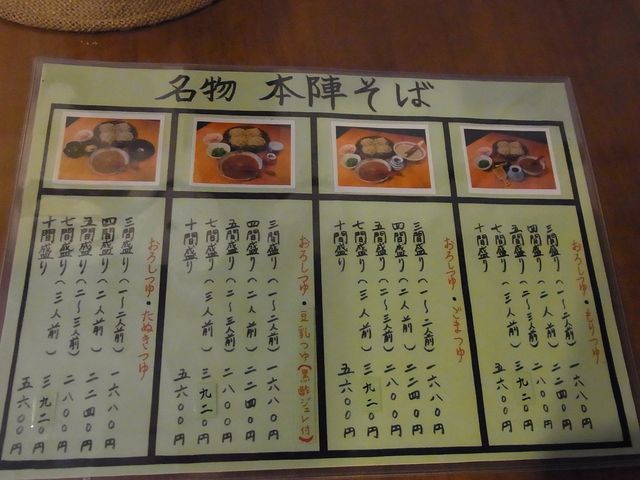 名物 本陣そば
おろしつゆ・もりつゆ
三間盛り(一〜二人前) 一六八〇円
四間盛り(二人前) 二二四〇円
五間盛り(二〜三人前) 二八〇〇円
七間盛り(三人前) 三九二〇円
十間盛り 五六〇〇円
おろしつゆ・ごまつゆ
三間盛り(一〜二人前) 一六八〇円
四間盛り(二人前) 二二四〇円
五間盛り(二〜三人前) 二八〇〇円
七間盛り(三人前) 三九二〇円
十間盛り 五六〇〇円
おろしつゆ・豆乳つゆ(黒酢ジュレ付)
三間盛り(一〜二人前) 一六八〇円
四間盛り(二人前) 二二四〇円
五間盛り(二〜三人前) 二八〇〇円
七間盛り(三人前) 三九二〇円
十間盛り 五六〇〇円
おろしつゆ・たぬきつゆ
三間盛り(一〜二人前) 一六八〇円
四間盛り(二人前) 二二四〇円
五間盛り(二〜三人前) 二八〇〇円
七間盛り(三人前) 三九二〇円
十間盛り 五六〇〇円